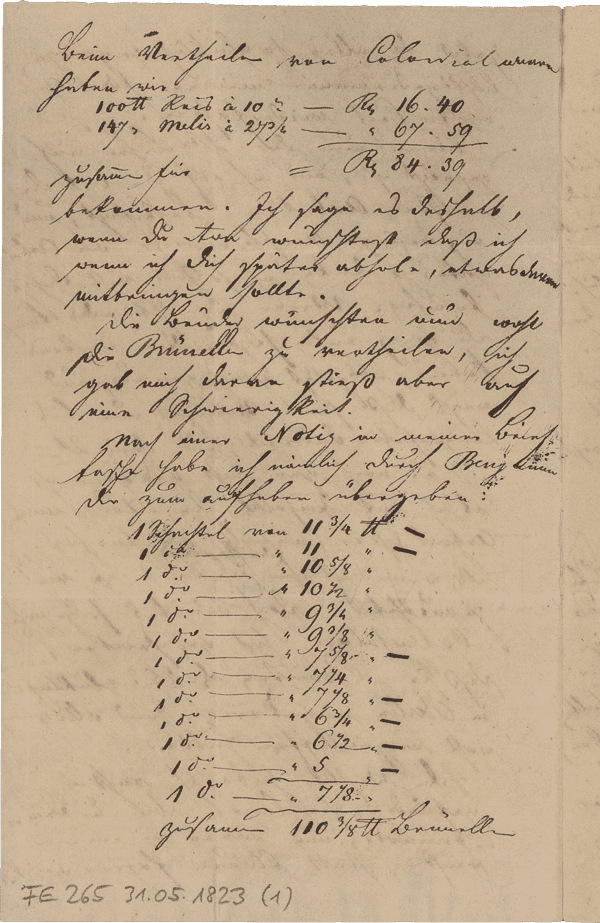 Beim Vertheilen von Colonialwaaren
haben wir
100 ℔ Reis à 10 — Rt 16. 40
147 " Melis à 27 3/4 — " 67. 59
zusamm für = Rt 84. 39
bekommen. Ich sage es deshalb,
wenn du etwa wünschtest daß ich
wenn ich dich später abhole, etwas davon
mitbringen sollte.
Die Brüder wünschten nun wohl
die Brünelle zu vertheilen, ich
gab mich daran stieß aber auf
eine Schwierigkeit.
Nach einer Notiz in meiner Brief
tasche habe ich nämlich durch
dir zum aufheben übergeben:
1 Schachtel von 11 3/4 ℔ —
1 do — " 11 " —
1 do — " 10 5/8 "
1 do — " 10 1/2 "
1 do — " 9 3/4 "
1 do — " 9 3/8 "
1 do — " 7 5/8 " —
1 do — " 7 1/4 "
1 do — " 7 1/8 " —
1 do — " 6 3/4 " —
1 do — " 6 1/2 " —
1 do — " 5 " —
1 do — " 7 1/8 "
zusamm 110 3/8 ℔ Brünelle
FE 265 31.05.1823 (1)